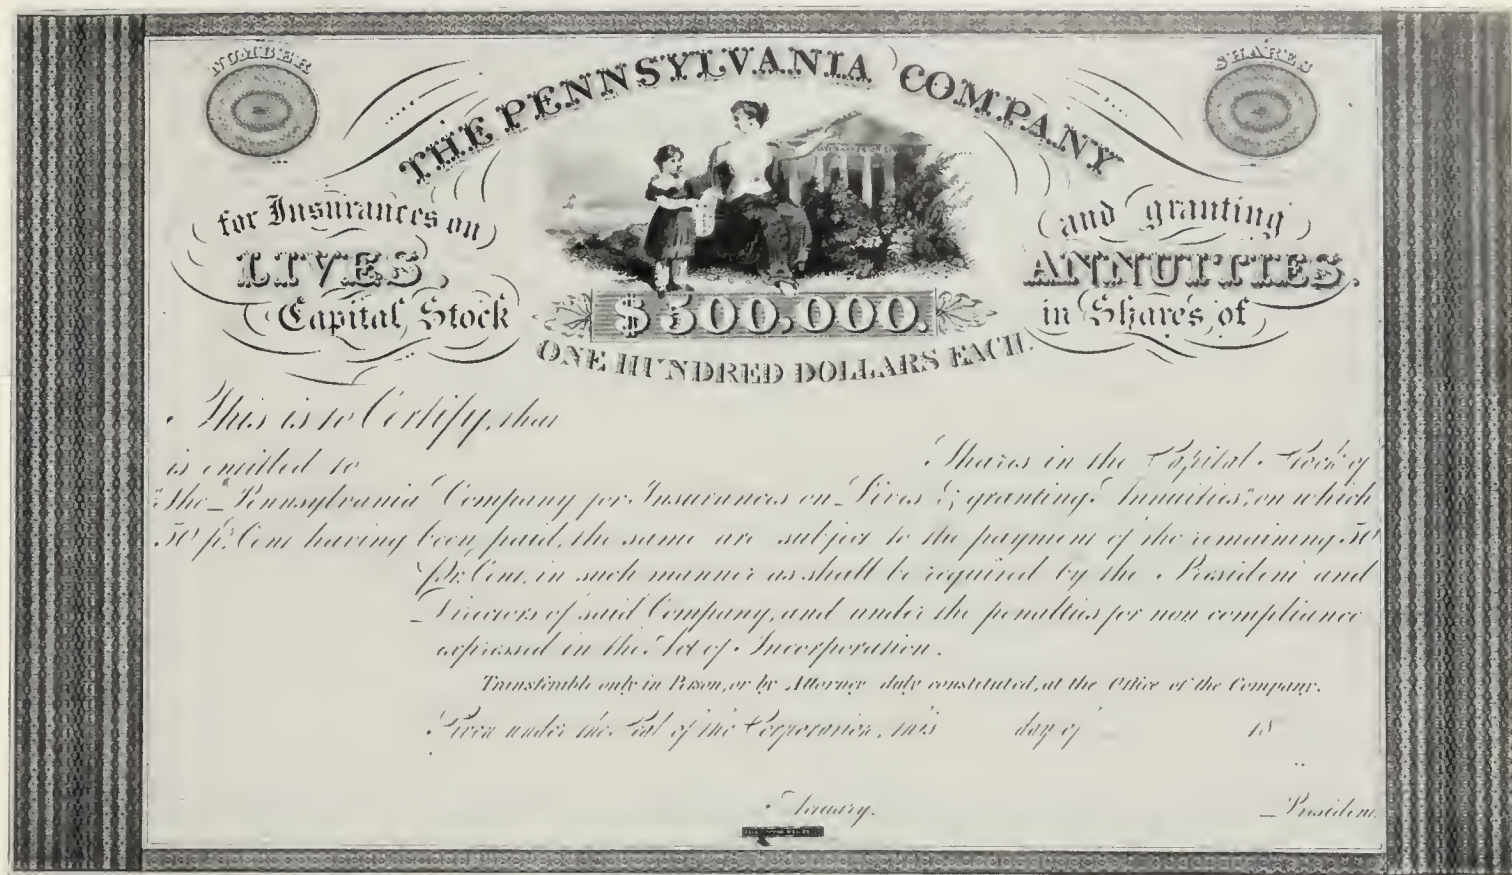 NUMBER
SHARES
THE PENNSYLVANIA COMPANY
for Insurances on
LIVES,
and granting
ANNUITIES.
Capital Stock
$500,000.
in Shares of
ONE HUNDRED DOLLARS EACH.
This is to Certify, that
is entitled to Shares in the Capital Stock of
"The Pennsylvania Company for Insurances on Lives & granting Annuities," on which
50 pr. Cent having been paid, the same are subject to the payment of the remaining 50
pr. Cent. in such manner as shall be required by the President and
Directors of said Company, and under the penalties for non compliance
expressed in the Act of Incorporation.
Transferable only in Person, or by Attorney duly constituted, at the Office of the Company.
Given under the Seal of the Corporation, this day of 18
President